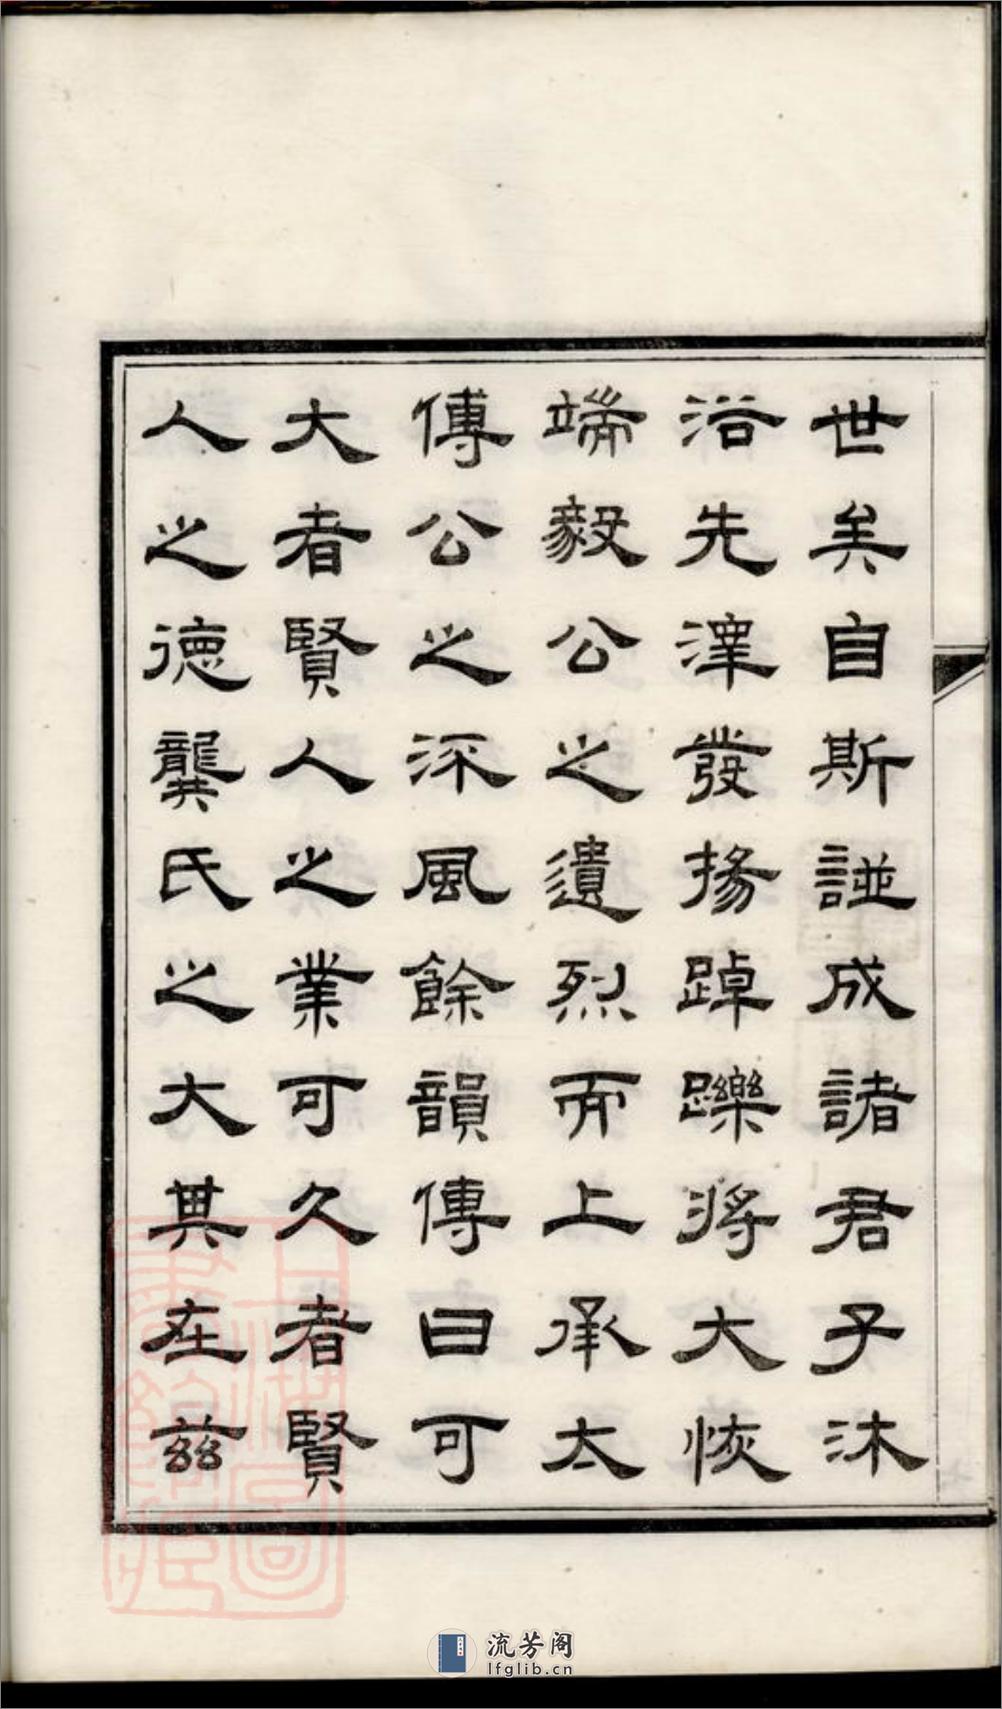 世矣自斯諩成諸君子沐
浴先澤發揚踔躒將大恢
端毅公之遺烈而上承太
傅公之深風餘韻傳曰可
大者賢人之業可久者賢
人之德龔氏之大其在茲
上海圖書館藏
流芳阁
lfglib.cn